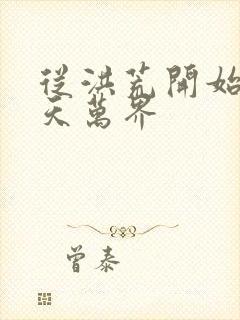 從洪荒開始
天萬界
曾泰